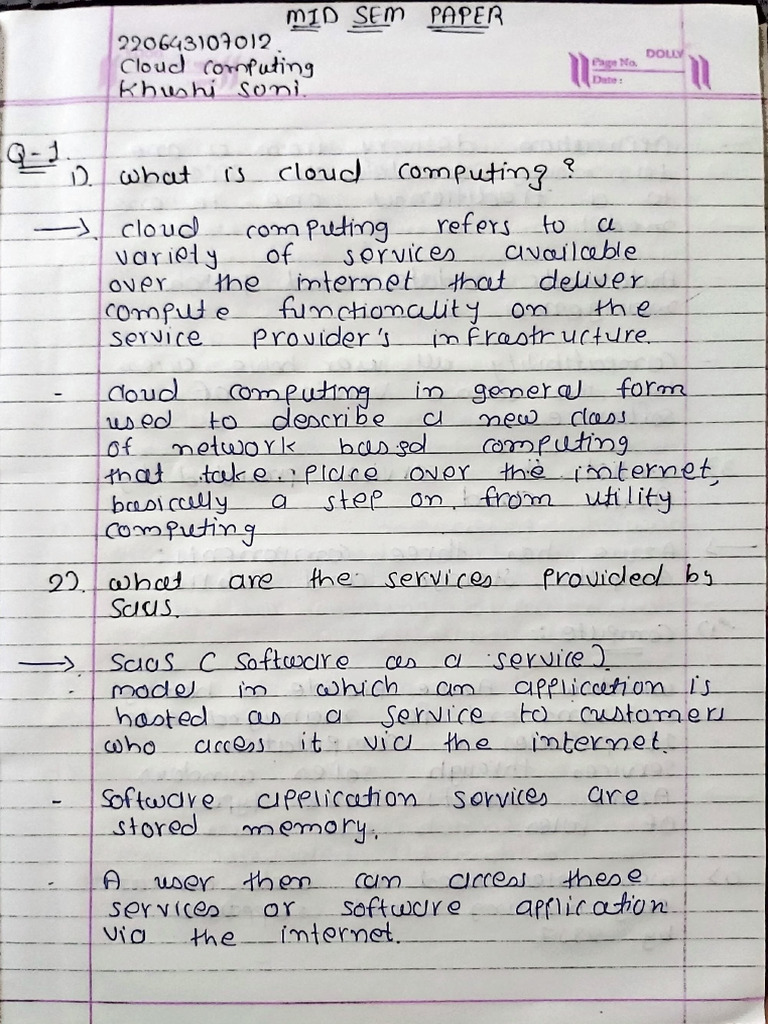 MID SEM PAPER
220643107012
Cloud computing
Khushi Soni.
DOLLY
Page No.
Date:
Q-1.
1). what is cloud computing?
→ cloud computing refers to a
variety of services available
over the internet that deliver
compute functionality on the
service provider's infrastructure.
- cloud computing in general form
used to describe a new class
of network based computing
that take place over the internet,
basically a step on from utility
computing
2). what are the services provided by
Saas.
→ Saas (Software as a service)
model in which an application is
hosted as a service to customers
who access it via the internet.
- Software application services are
stored memory.
- A user then can access these
services or software application
via the internet.